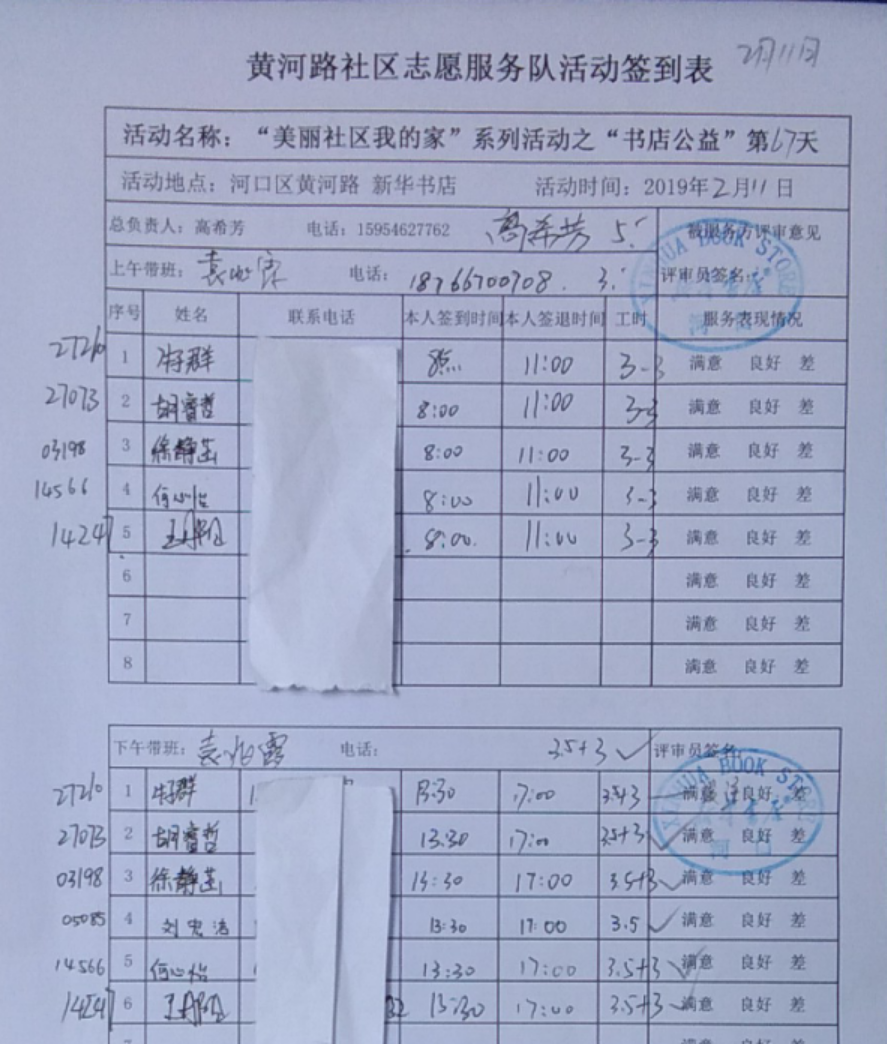 黄河路社区志愿服务队活动签到表 2月11日
活动名称：“美丽社区我的家”系列活动之“书店公益”第67天
活动地点：河口区黄河路 新华书店 活动时间：2019年2月11日
总负责人：高希芳 电话：15954627762 高希芳 5. 被服务方评审意见
上午带班： 电话：18766700708. 3. 评审员签名：
XINHUA BOOK STORE
序号 姓名 联系电话 本人签到时间 本人签退时间 工时 服务表现情况
27210 1 牛群 8点 11:00 3-3 满意 良好 差
27073 2 胡睿哲 8:00 11:00 3-3 满意 良好 差
03198 3 徐静 8:00 11:00 3-3 满意 良好 差
14566 4 何心怡 8:00 11:00 3-3 满意 良好 差
14247 5 8:00 11:00 3-3 满意 良好 差
6 满意 良好 差
7 满意 良好 差
8 满意 良好 差
下午带班： 电话： 3.5+3 评审员签名:
XINHUA BOOK STORE
27210 1 牛群 13:30 17:00 3.5+3 满意 良好 差
27073 2 胡睿哲 13:30 17:00 3.5+3 满意 良好 差
03198 3 徐静 13:30 17:00 3.5+3 满意 良好 差
05085 4 刘宏洁 13:30 17:00 3.5 满意 良好 差
14566 5 何心怡 13:30 17:00 3.5+3 满意 良好 差
14247 6 32 13:30 17:00 3.5+3 满意 良好 差